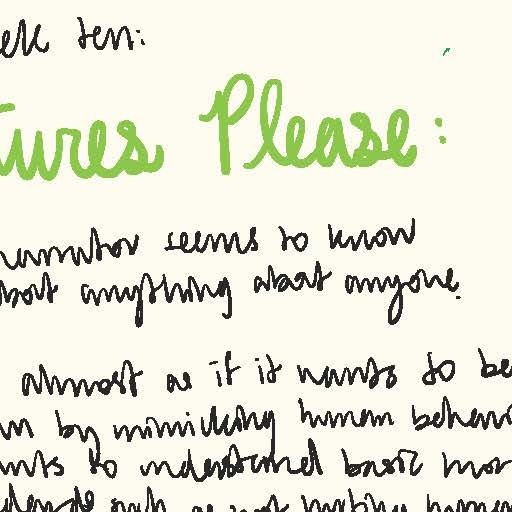 ek ten:
tures Please:
narrator seems to know
about anything about anyone.
almost as if it wants to be
by mimicking human behavi
nts to understand basic mor
such as not